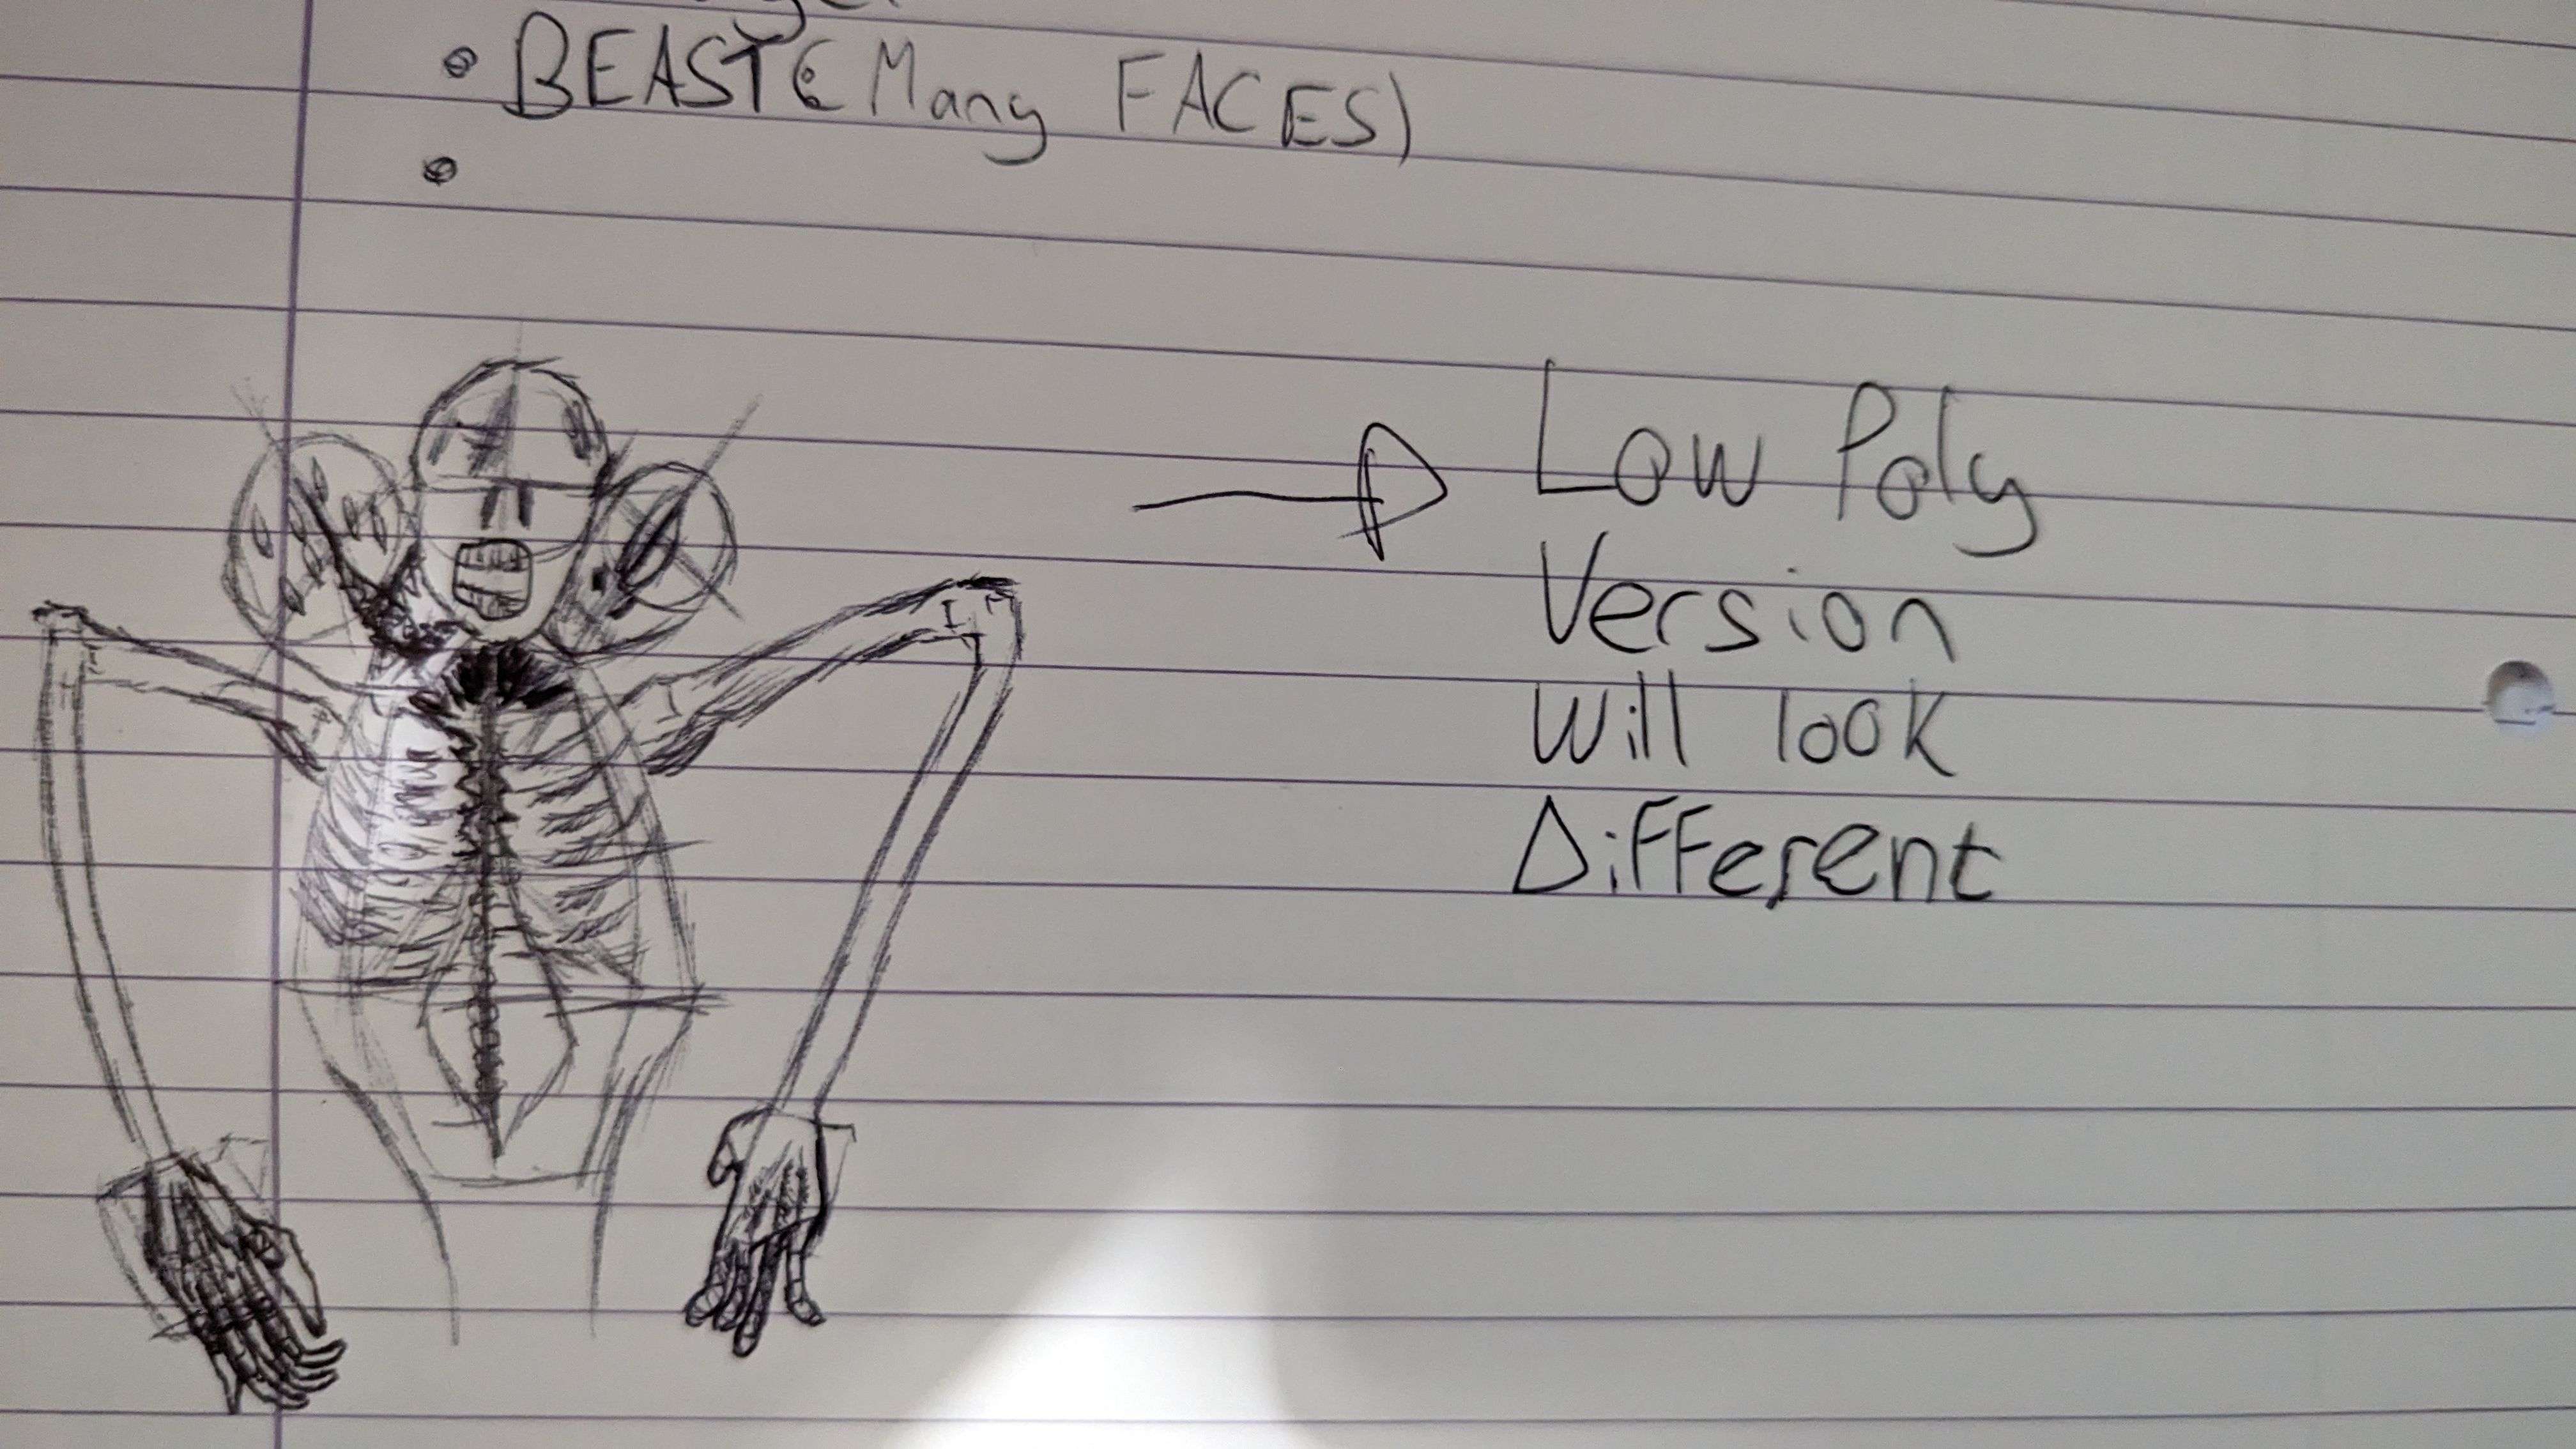 • BEAST (Many FACES)
•
Low Poly
Version
Will look
Different